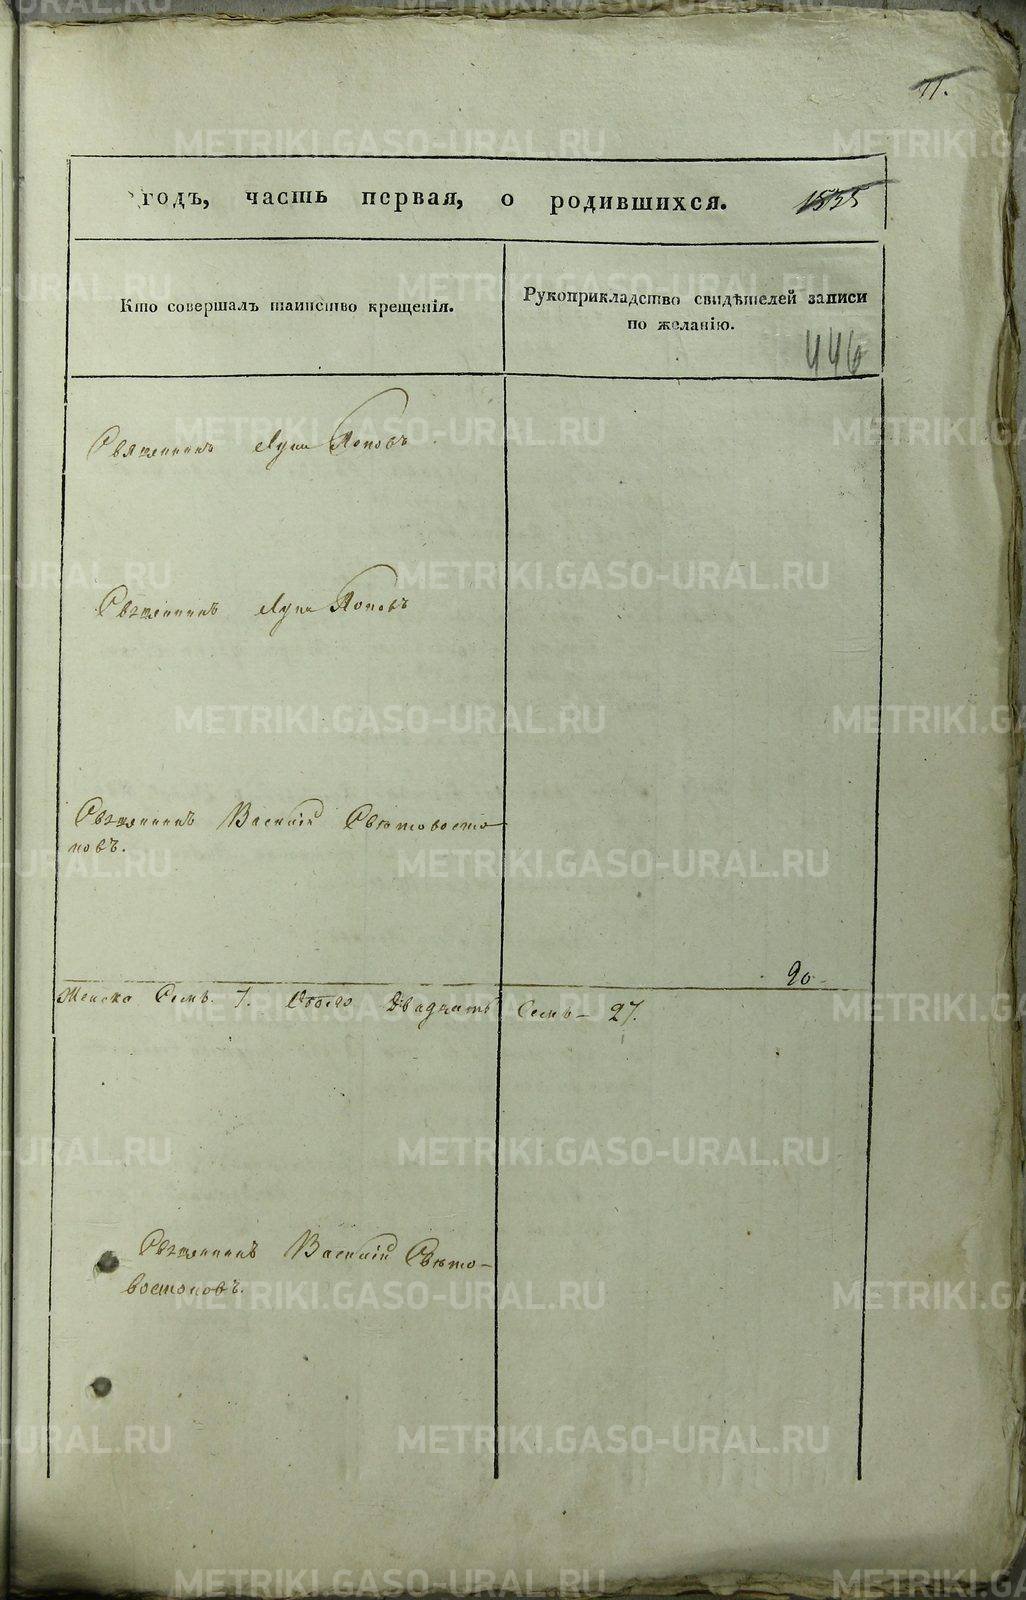 71.
годъ, часть первая, о родившихся. 1835
Кто совершалъ таинство крещенія.
Рукоприкладство свидѣтелей записи
по желанію.
446
Священникъ Лупа Поповъ
Священникъ Лупа Поповъ
Священникъ Василій Свѣтовосто
ковъ.
20
Женска Семь. 7. Обоего Двадцать Семь - 27.
Священникъ Василій Свѣто-
востоковъ.
METRIKI.GASO-URAL.RU